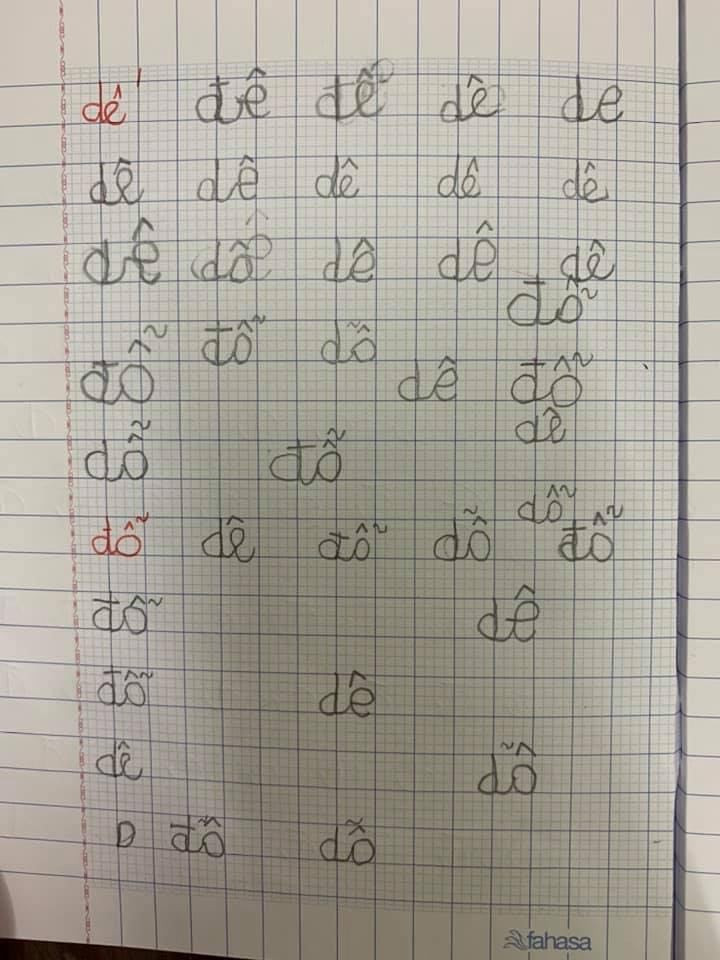 dê đê đề dê de
dê dê dê dê dê
dê dỗ dê dê dê
đỗ
đỗ đỗ dỗ dê đỗ
dê
dỗ đỗ
dỗ
đỗ dê đỗ dỗ đỗ
đỗ dê
đỗ dê
dê dỗ
D đỗ dỗ
fahasa